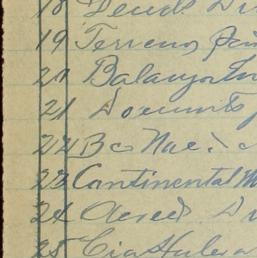 18 Deud. Di
19 Terrenos
20 Balanza In
21 Documts
22 Bco Nac. d
23 Continental M
24 Acreed. Di
25 Cia Hulera